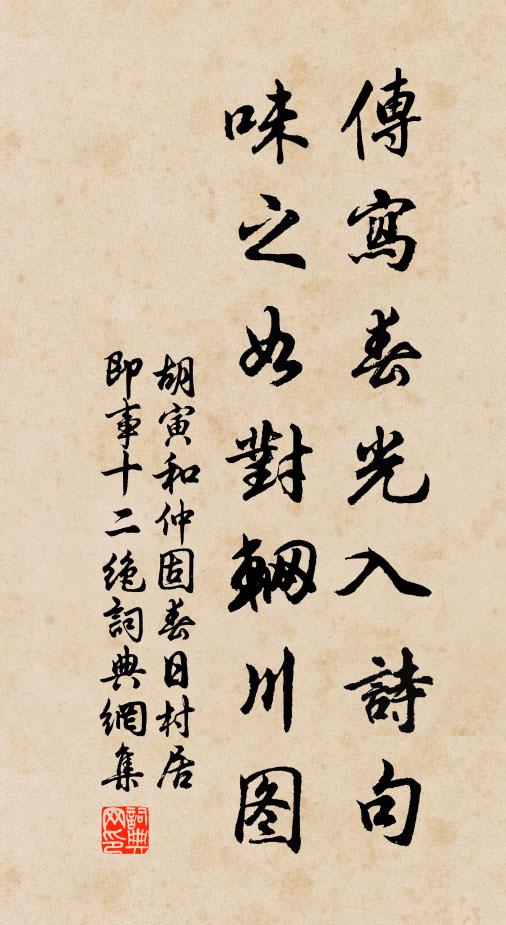 傳寫春光入詩句
味之如對輞川图
胡寅和仲固春日村居
即事十二绝詞典網集
詞典网印